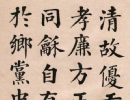 清故優
孝廉方正
同龢自
於鄉黨